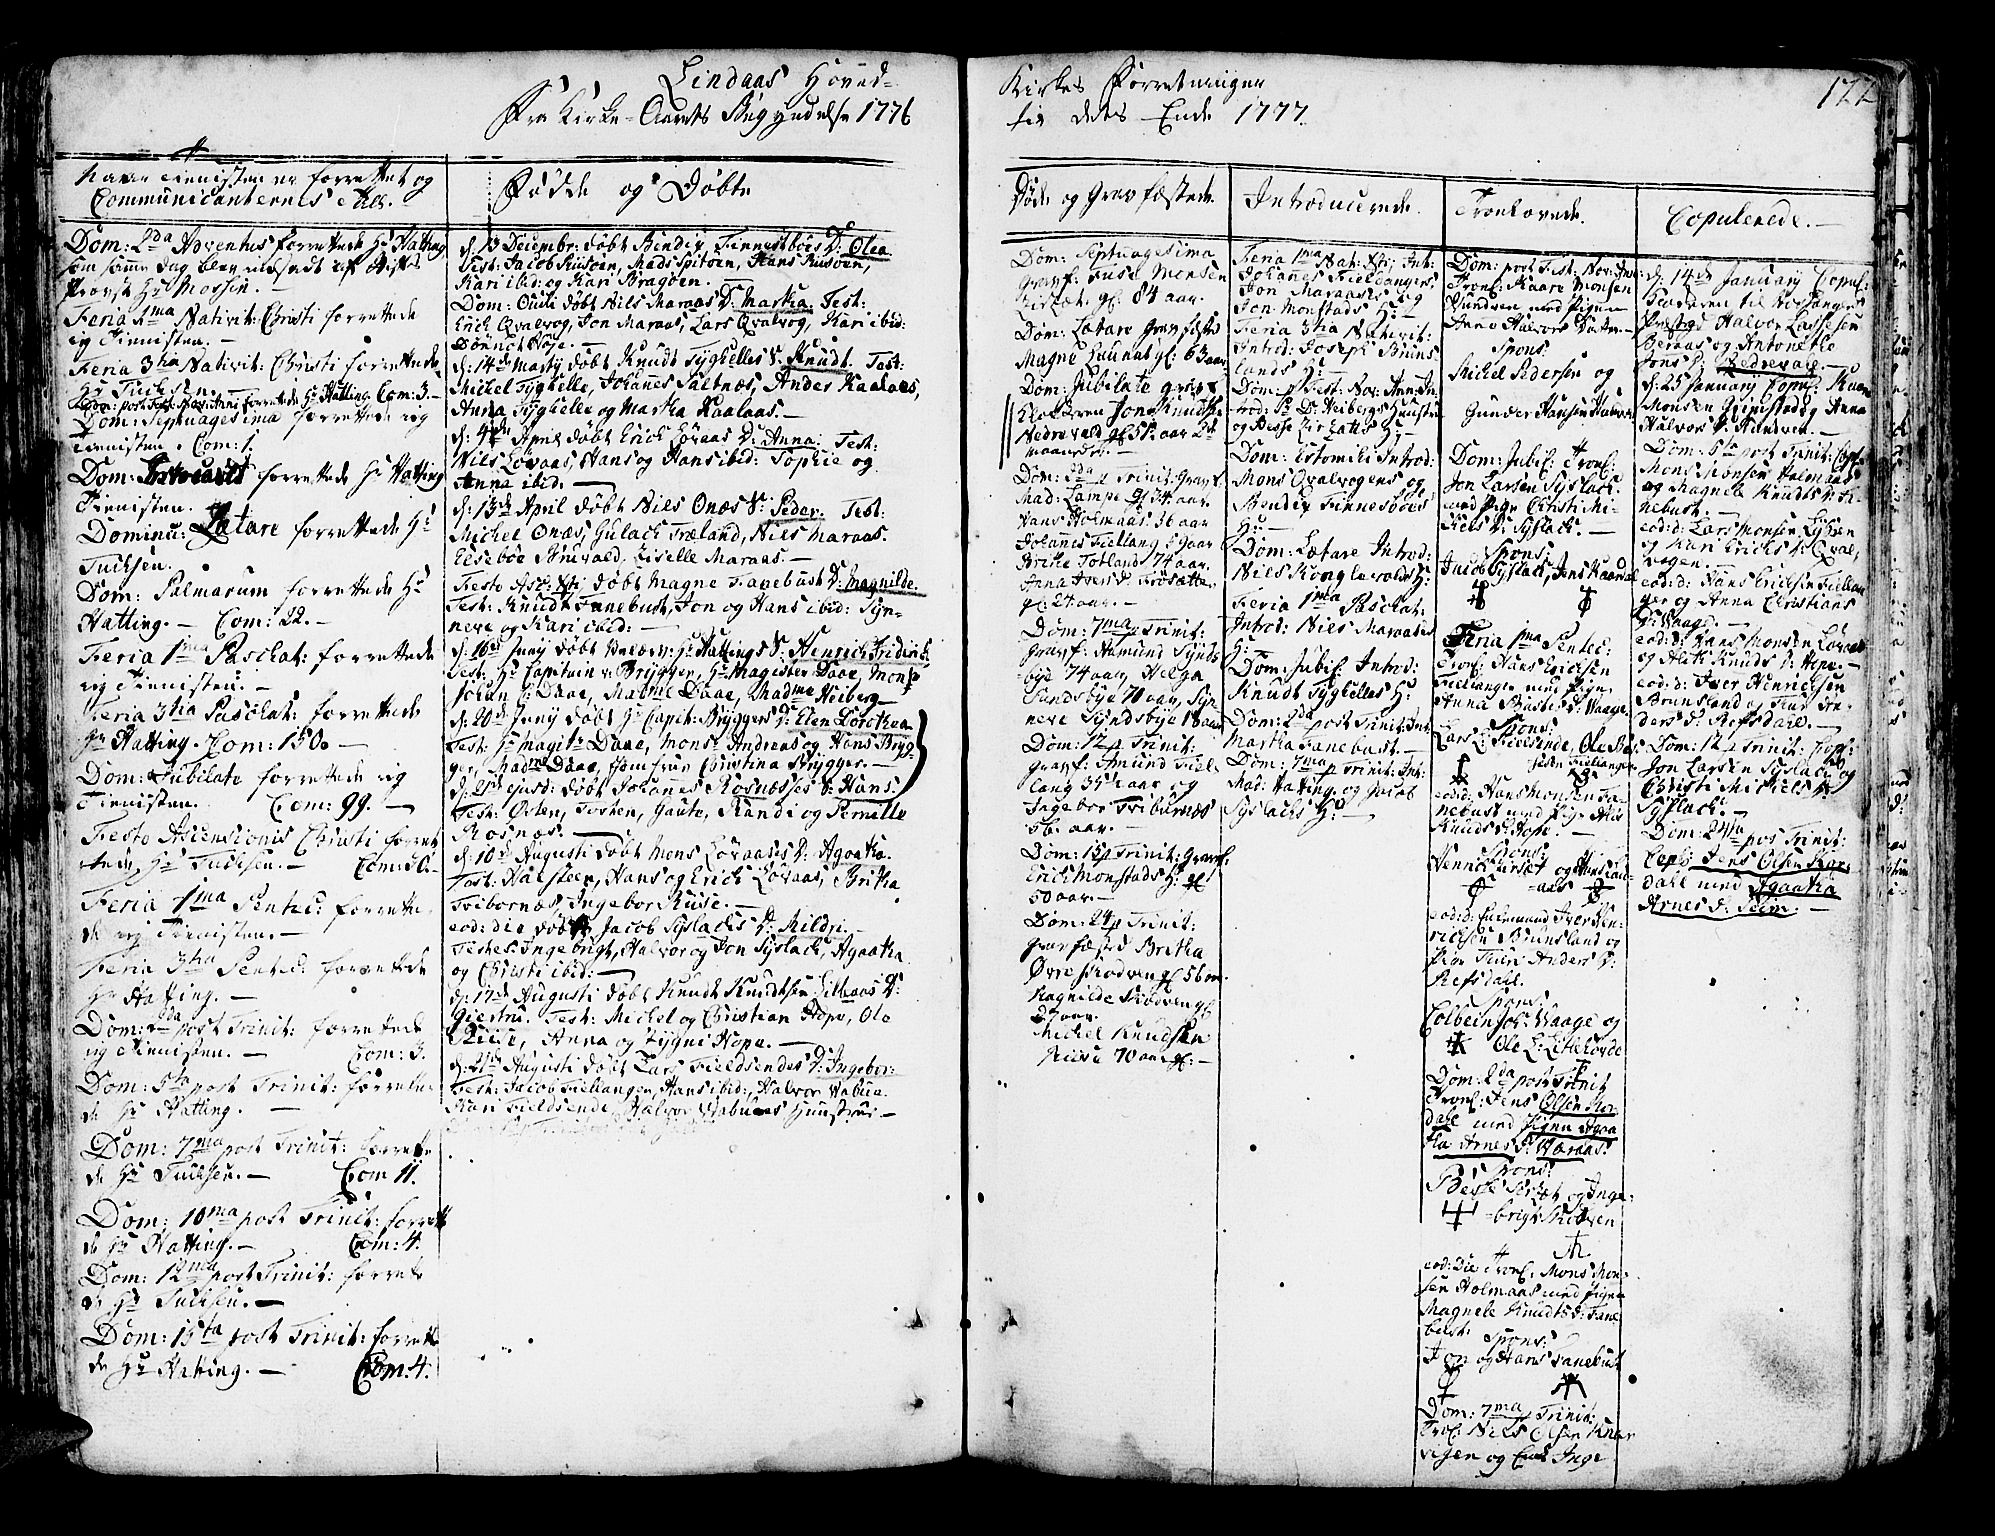 Lindaas Hoved-
Fra Kirke-Aarets Begyndelse 1776
Naar Tienisten er forrettet og
Communicanternes Tall.
Dom: 2da Adventus forrettede Hr Hatting
som samme dag blev indsadt af
Provst Hr Mossin. —
Feria 1ma Nativit: Christi forrettede
ieg Tienisten. —
Feria 3tia Nativit: Christi forrettede
Hr Tuchsen.
Dom: post Fest: Nov: Anni forrettede Hr Hatting Com: 3. —
Dom: Septuagesima forrettede ieg
Tienisten. Com: 1.
Dom: forrettede Hr Hatting
Tienisten. —
Dominic: Lætare forrettede Hr
Tuchsen.
Dom: Palmarum forrettede Hr
Hatting. — Com: 22. —
Feria 1ma Paschat: forrettede
ieg Tienisten. —
Feria 3tia Paschat: forrettede
Hr Hatting. Com: 150. —
Dom: Jubilate forrettede ieg
Tienisten. Com: 99. —
Festo Ascensionis Christi forret
tede Hr Tuchsen. — Com:
Feria 1ma Pentec: forrette
de ieg Tienisten. —
Feria 3tia Pentec: forrettede
Hr Hatting. —
Dom: 2da post Trinit: forrettede
ieg Tienisten. — Com: 3.
Dom: 5ta post Trinit: forrette
de Hr Hatting. —
Dom: 7ma post Trinit: forrette
de Hr Tuchsen. — Com 11.
Dom: 10ma post Trinit: forrette
de Hr Hatting. — Com: 4.
Dom: 12ma post Trinit: forrette
de Hr Tuchsen. —
Dom: 15ta post Trinit: forrette
de Hr Hatting. — Com: 4.
Fødde og Døbte
d: 13 Decembr: døbt Bendix Finnesbøes D: Olea
Test: Jacob Risøen, Mads Spitøen, Hans Risøen,
Kari ibid: og Kari Bragøen.
Dom: Culi døbt Nils Maraas D: Martha. Test:
Erich Qvalvog, Jon Maraas, Lars Qvalvog, Kari ibid:
Hope. —
d: 14de Marty døbt Knudt Tyghelles S: Knudt. Test:
Michel Tyghelle, Johanes Saltnæs, Anders Kaalaas,
Anna Tyghelle og Martha Kaalaas. —
d: 4de April døbt Erich Lovaas D: Anna. Test:
Nils Lovaas, Hans og Hans ibid: Sophie og
Anna ibid. —
d: 13de April døbt Niels Onæs S: Peder. Test:
Michel Onæs, Gulach Træland, Niels Maraas.
Elsebøe Risevald, Liselle Maraas. —
Festo Asc: Xsti døbt Magne Fanebust D: Magnilde.
Test: Knudt Fanebust, Jon og Hans ibid: Syn-
neve og Kari ibid: —
d: 16de Juny døbt Hr Hattings S: Henrich Fridrich
Test: Hr Capitain v: Brygger, Hr Magister Daae, Monsr
Johan S: Daae, Madme Daae, Madme Heiberg —
d: 20de Juny døbt Hr Capit: Bryggers D: Elen Dorothea
Test: Hr Magistr Daae, Monsr Andreas og Hans Bryg-
ger, Madme Daae, Jomfrue Christina Brygger. —
d: ejusd: døbt Johanes Rosnæsses S: Hans.
Test: Østen, Torsten, Gaute, Randi og Pernille
Rosnæs. —
d: 10de Augusti døbt Mons Lovaases D: Agaatha.
Test: Halsteen, Hans og Erich Lovaas, Britha
Fribornæs, Ingebor Riise. —
eod: die døbt Jacob Syslachs D: Mildri.
Testes: Ingebrigt, Halvor og Jon Syslach, Agaatha
og Christi ibid: —
d: 17de Augusti døbt Knudt Knudtsen Lilleaas D:
Giertru. Test: Michel og Christian Hope, Ole
Riise, Anna og Sygni Hope. —
d: 21de Augusti døbt Lars Fieldsendes D: Ingebor:
Test: Jacob Fieliangen, Hans ibid:, Halvor Vabue.
Kari Fieldsende, Halvor Vabues Hunstrue —
Kirkes Forretninger
til dets Ende 1777
122
Døde og Gravfæstede.
Dom: Septuagesima
Gravf: Monsen
gl: 84 aar.
Dom: Lætare Gravfæstet
Magne gl: 63 aar
Dom: Jubilate Gravf
Klocheren Jon Knudtsen
Nedrevald gl 51 aar
maaneder.
Dom: 2da p Trinit: Gravf.
Mad: Lampe gl 34 aar.
Hans Holmaas 36 aar
Johanes Fiellang 69 aar
Brithe Totland 74 aar.
Anna Ivers D:
gl: 24 aar. —
Dom: 7ma p Trinit:
Gravf: Aamund Synds
bye 74 aar, Helga
Sandsbye 70 aar, Syn
neve Syndsbye 18 aar
Dom: 12 p Trinit:
Gravf: Amund Fiel
lang 35 aar og
Ingebor Fribornæs
56. aar. —
Dom: 15 p Trinit: Gravf.
Erich Monstads H: gl
50 aar. —
Dom: 24 p Trinit:
Gravfæsted Britha
Øvre Skodven gl 56 aar.
Ragnilde Skodven gl
27 aar.
Michel Knudsen
Riise 70 aar gl: —
Introducerede.
Feria 1ma Nat: Xsti; Int:
Johanes Fieldangers,
Jon Maraases og
Jon Monstads H: —
Feria 3tia Nativit:
Introd: Joseph Bruns
lands H: —
Dom: p Fest: Nov: Ann: In
trod: Sr D: Heibergs Hunstrue
og Besse Kirkatts H: —
Dom: Estomihi Introd:
Mons Qvalvogens og
Bendix Finnesbøes
H: —
Dom: Lætare Introd:
Niels Konglevolds H:
Feria 1ma Paschat:
Introd: Niels Maraases
H: —
Dom: Jubil: Introd:
Knudt Tyghelles H:
Dom: 2da post Trinit: Int
Martha Fanebust. —
Dom: 7ma p Trinit: Int:
Mad: Hatting og Jacob
Syslachs H: —
Trolovede.
Dom: post Fest: Nov: Ann
Trol: Kaare Monsen
Hundven med Pigen
Anna Halvors Datter —
Spons:
Michel Pedersen og
Gunder Hansen
Dom: Jubil: Trol:
Jon Larsen Syslach
med Pige Christi Mi-
chels D: Syslach. —
Spons:
Jacob Syslach, Jens Kaardal
Feria 1ma Pentec:
Trol: Hans Erichsen
Fieliangen med Pigen
Anna Christies D: Vaage.
Spons:
Lars L: Fieldsende, Ole
Fieliangen
eod: Hans Monsen Fa-
nebust med Pige Alis
Knuds D: Hope. —
Spons:
eod: d: Enkemand Iver Hen-
richsen Brunsland og
Pige Turi Anders D:
Refsdahl.
Spons:
Colbein Joh: Vaage og
Ole L: Litlehovde
Dom: 2da post Trinit
Trol: Jens Olsen Kor-
dahl med Pigen Agaa
tha Arnes D: Waraas:
Spons:
Besse og Inge-
brigt Skodven
eod: die Trol: Mons Mon-
sen Holmaas med Pigen
Magnele Knudts D: Fane
bust. Spons:
Jon og Hans Fanebust
Dom: 7ma p Trinit:
Trol: Nils Olsen Knar
vigen og Inge
Copulerede. —
d: 14de January Copul:
til Hosanger
Præstegd Halvor Lassesen
Bernas og Antonethe
Jons D: Nedrevald.
d: 25 January Copul: Kaare
Monsen Grimstad og Anna
Halvors D: Hundven. —
Dom: 5ta post Trinit: Copl.
Mons Monsen Halmaas
og Magnele Knudts D: Fa
nebust. —
eod: d: Lars Monsen Lyssen
og Kari Erichs D: Qval,
vogen. —
eod: d: Hans Erichsen Fielian
ger og Anna Christians
D: Vaage. —
eod: d: Hans Monsen Lovaas
og Alis Knuds D: Hope. —
eod: d: Iver Henrichsen
Brunsland og Turi An-
ders D: Refsdahl. —
Dom: 12 p Trinit: Copl:
Jon Larsen Syslach og
Christi Michels D:
Syslach. —
Dom: 24ta post Trinit:
Copl: Jens Olsen Kor-
dahl med Agaatha
Arnes D: Seim. —